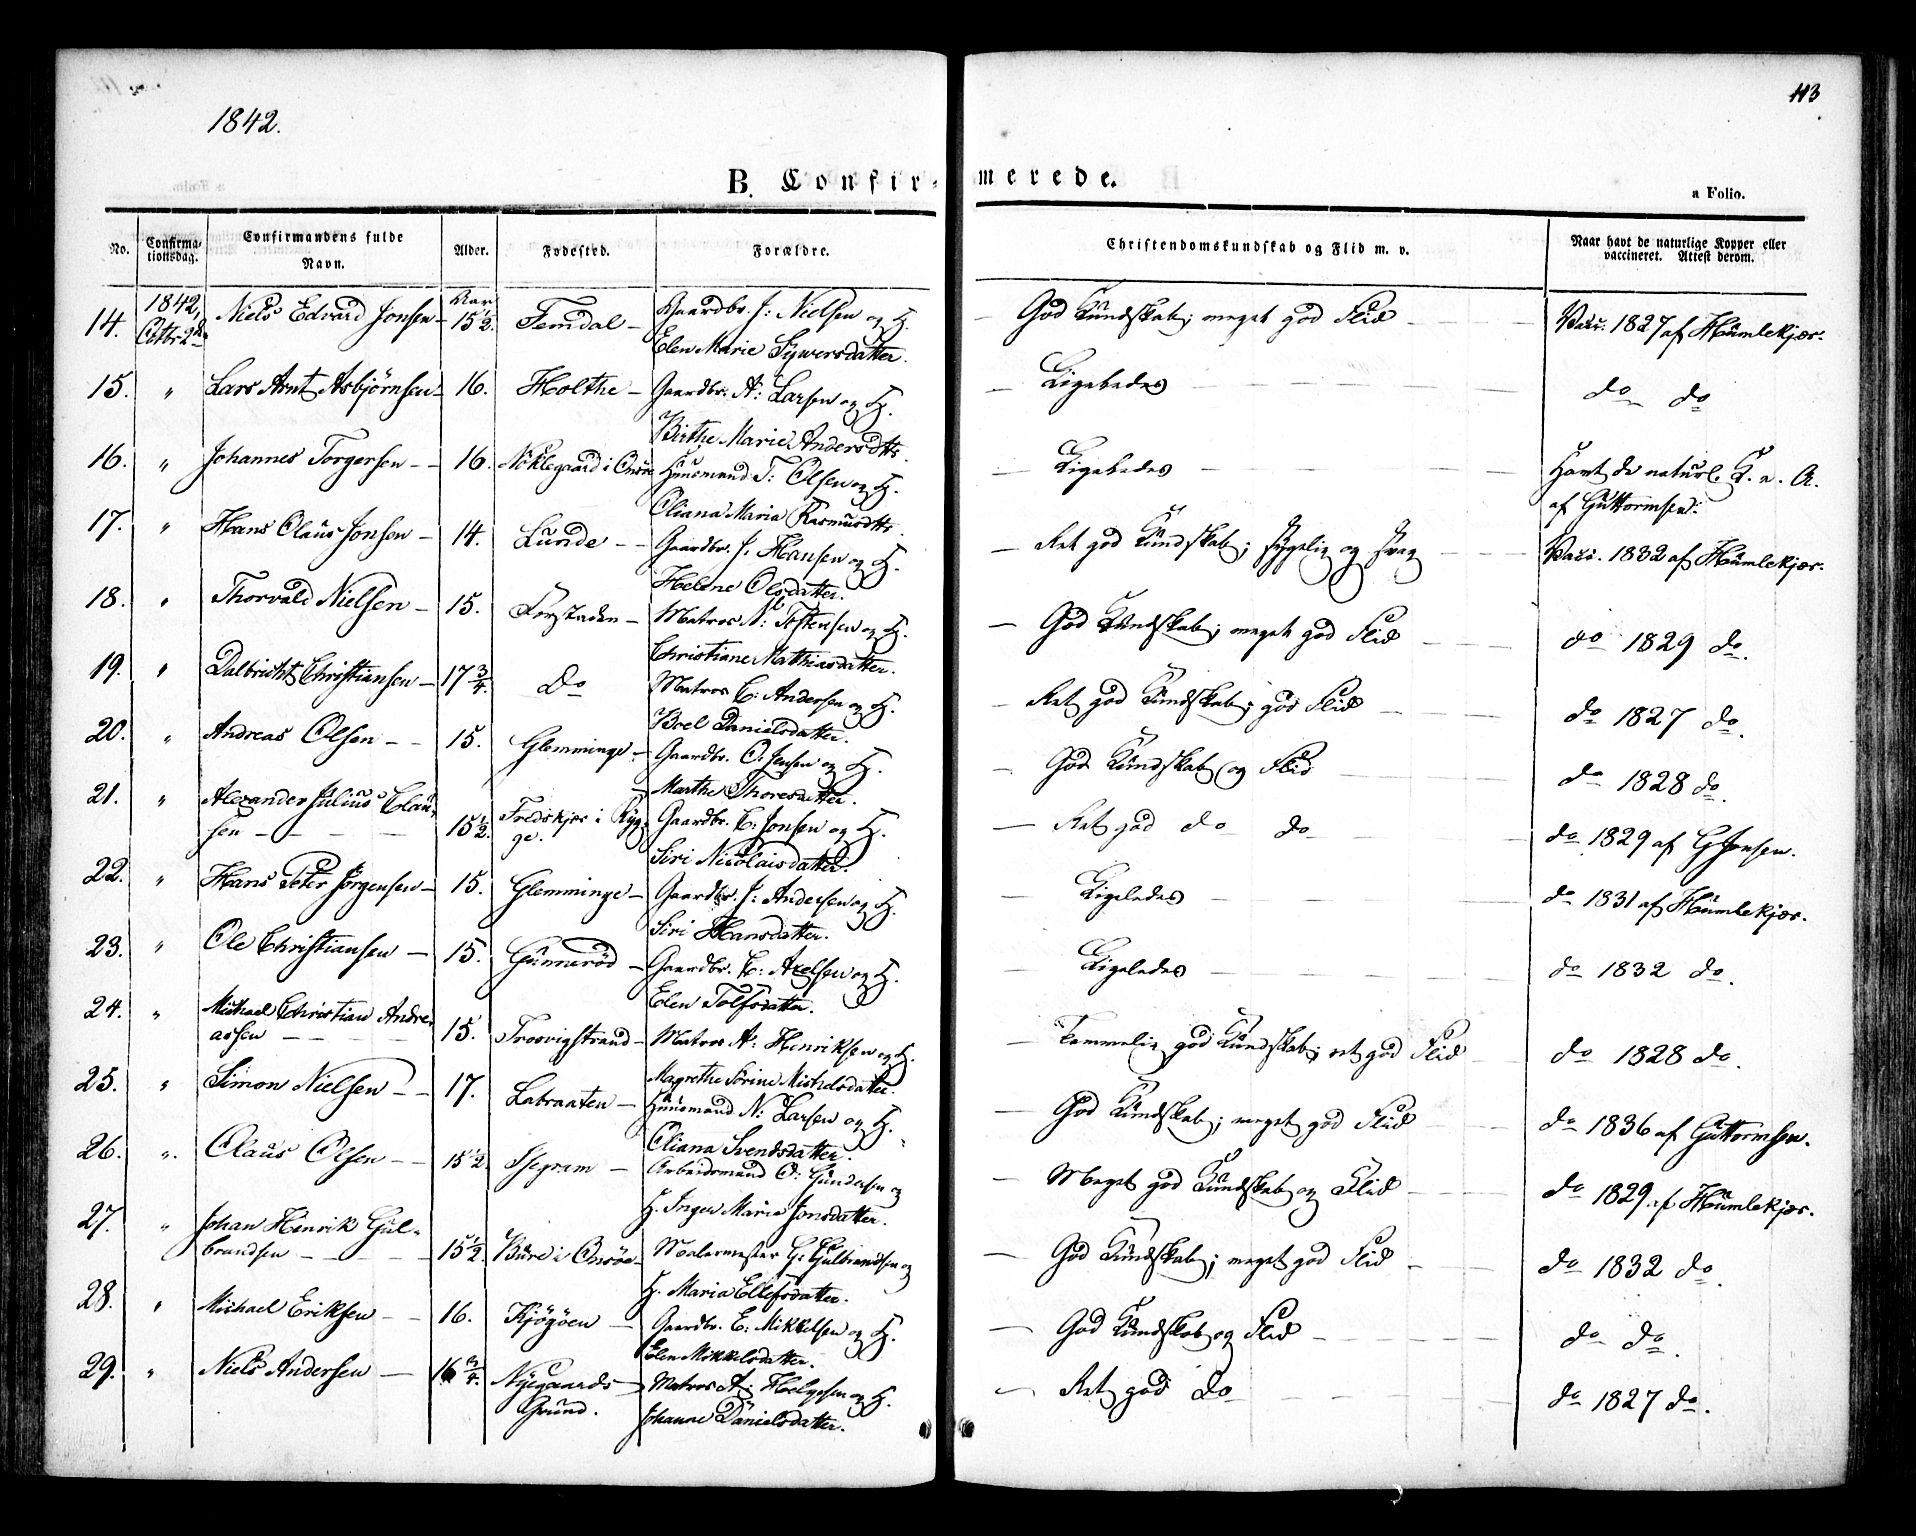 113
1842.
B. Confirmerede.
a Folio.
No. Confirmationsdag. Confirmandens fulde Navn. Alder. Fødested. Forældre. Christendomskundskab og Flid m. v. Naar havt de naturlige Kopper eller vaccineret. Attest derom.
14. 1842, Octbr 2d Niels Edvard Jonsen Aar 15 1/2. Femdal Gaardbr. J: Nielsen og H. Elen Marie Sywersdatter. God Kundskab; meget god Flid Vacc. 1827 af Humlekjær.
15. " Lars Arnt Asbjørnsen 16. Holthe Gaardbr. A: Larsen og H. Birthe Marie Andersdtr. Ligeledes do do
16. " Johannes Torgersen 16. Nøklegaard i Onsøe Huusmand T: Olsen og H. Oliana Maria Rasmusdtr. Ligeledes Havt de naturl. K. a. A. af Guttormsen.
17. " Hans Olaus Jonsen 14. Lunde Gaardbr. J. Hansen og H. Helene Olsdatter. Ret god Kundskab; sygelig og svag Vacc. 1832 af Humlekjær.
18. " Thorvald Nielsen 15. Forstaden Matros N: Tostensen og H. Christiane Mathiasdatter. God Kundskab; meget god Flid do 1829 do.
19. " Dalbricht Christiansen 17 3/4. Do Matros C: Andersen og H. Boel Danielsdatter. Ret god Kundskab; god Flid do 1827 do.
20. " Andreas Olsen 15. Glemminge Gaardbr. O: Jensen og H. Marthe Thoresdatter. God Kundskab og Flid do 1828 do.
21. " Alexander Julius Clausen 15 1/2. Fredskjær i Rygge. Gaardbr. C: Jonsen og H. Siri Nicolaisdatter. Ret god do do do 1829 af G Jensen.
22. " Hans Peter Jørgensen 15. Glemminge Gaardbr. J: Andersen og H. Siri Hansdatter. Ligeledes do 1831 af Humlekjær.
23. " Ole Christiansen 15. Gunnerød Gaardbr. C: Axelsen og H. Elen Tolfsdatter. Ligeledes do 1832 do.
24. " Michael Christian Andreassen 15. Trosvigstrand Matros A: Henriksen og H. Magrethe Sørine Michelsdatter. Temmelig god Kundskab; ret god Flid do 1828 do.
25. " Simon Nielsen 17. Labraaten Huusmand N: Larsen og H. Oliana Svendsdatter. God Kundskab; meget god Flid do 1836 af Guttormsen.
26. " Olaus Olsen 15 1/2 Segram Arbeidsmand O: Gundersen og H. Inger Maria Jonsdatter. Meget god Kundskab og Flid do 1829 af Humlekjær.
27. " Johan Henrik Gulbrandsen 15 1/2. Bure i Onsøe Malermester G: Gulbrandsen og H. Maria Ellefsdatter. God Kundskab; meget god Flid do 1832 do.
28. " Michael Eriksen 16. Kjøgøen Gaardbr. E: Mikkelsen og H. Elen Mikkelsdatter. God Kundskab og Flid do do.
29. " Niels Andersen 16 3/4. Nygaards Grund. Matros A: Helgesen og H. Johanne Danielsdatter. Ret god do do 1827 do.